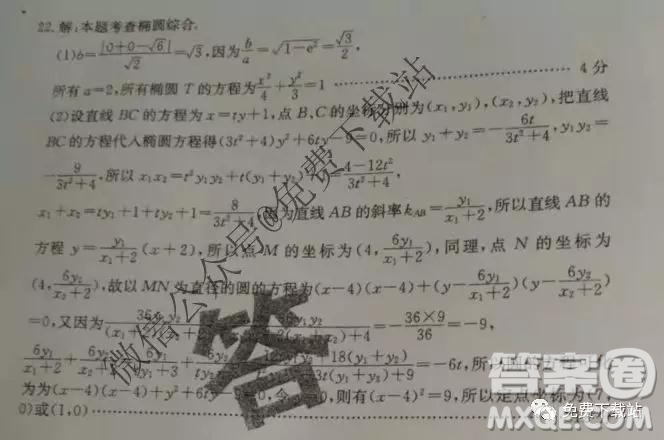 22.解:本题考查椭圆综合.
(1)b=|0+0-√6|/√2=√3,因为b/a=√(1-e²)=√3/2,
所有a=2,所有椭圆T的方程为x²/4+y²/3=1 ………… 4分
(2)设直线BC的方程为x=ty+1,点B、C的坐标分别为(x₁,y₁),(x₂,y₂),把直线
BC的方程代入椭圆方程得(3t²+4)y²+6ty-9=0,所以y₁+y₂=-6t/(3t²+4),y₁y₂=
-9/(3t²+4),所以x₁x₂=t²y₁y₂+t(y₁+y₂) =(4-12t²)/(3t²+4),
x₁+x₂=ty₁+1+ty₂+1=8/(3t²+4),因为直线AB的斜率k_AB=y₁/(x₁+2),所以直线AB的
方程y=y₁/(x₁+2)(x+2),所以点M的坐标为(4,6y₁/(x₁+2)),同理,点N的坐标为
(4,6y₂/(x₂+2)),故以MN为直径的圆的方程为(x-4)(x-4)+(y-6y₁/(x₁+2))(y-6y₂/(x₂+2))
=0,又因为 =-36×9/36=-9,
6y₁/(x₁+2)+ +18(y₁+y₂) 3t(y₁+y₂)+9 =-6t,所以
为为(x-4)(x-4)+y²+6ty =0,则有(x-4)²=9,所以定点坐标为(7,
0)或(1,0)
微信公众号@免费下载站
答
答案圈
MXQE.COM
免费下载站